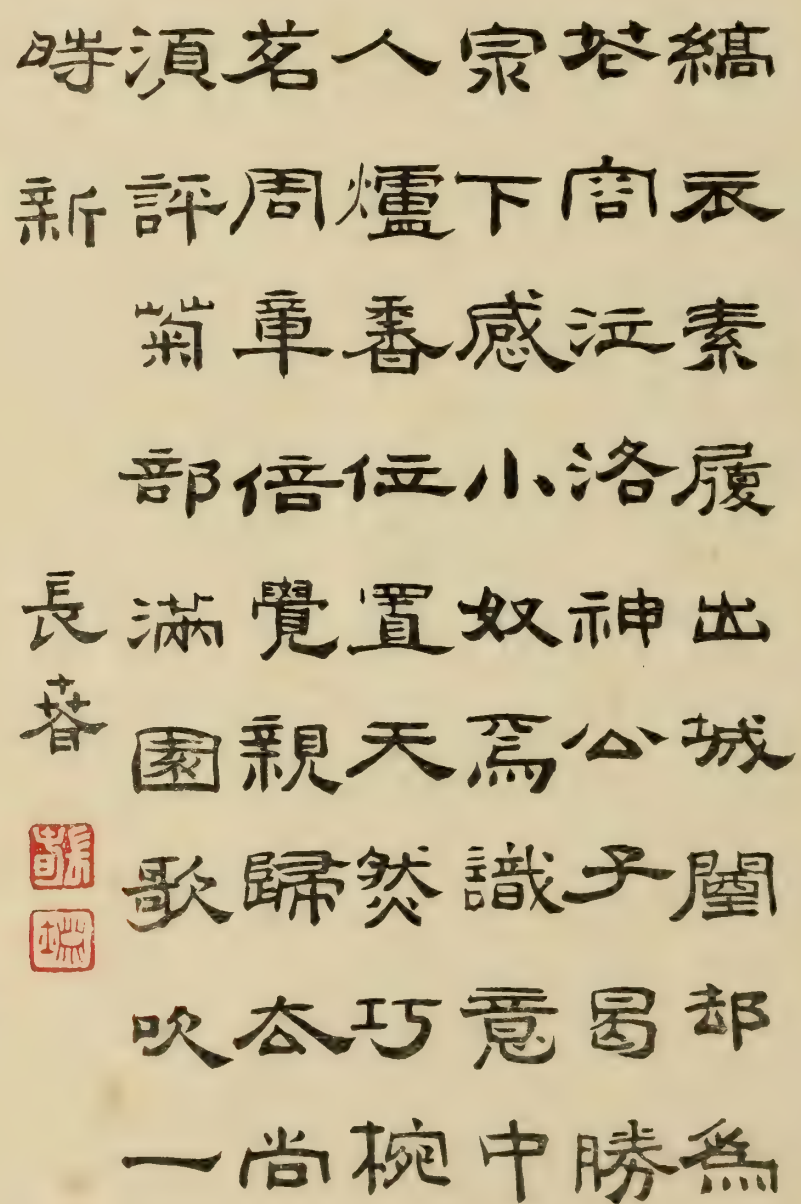 縞衣素履出城闉却為
花容泣洛神公子曷勝
泉下感小奴焉識意中
人爐香位置天然巧椀
茗周章倍覺親歸去尚
須評菊部滿園歌吹一
時新
長萅